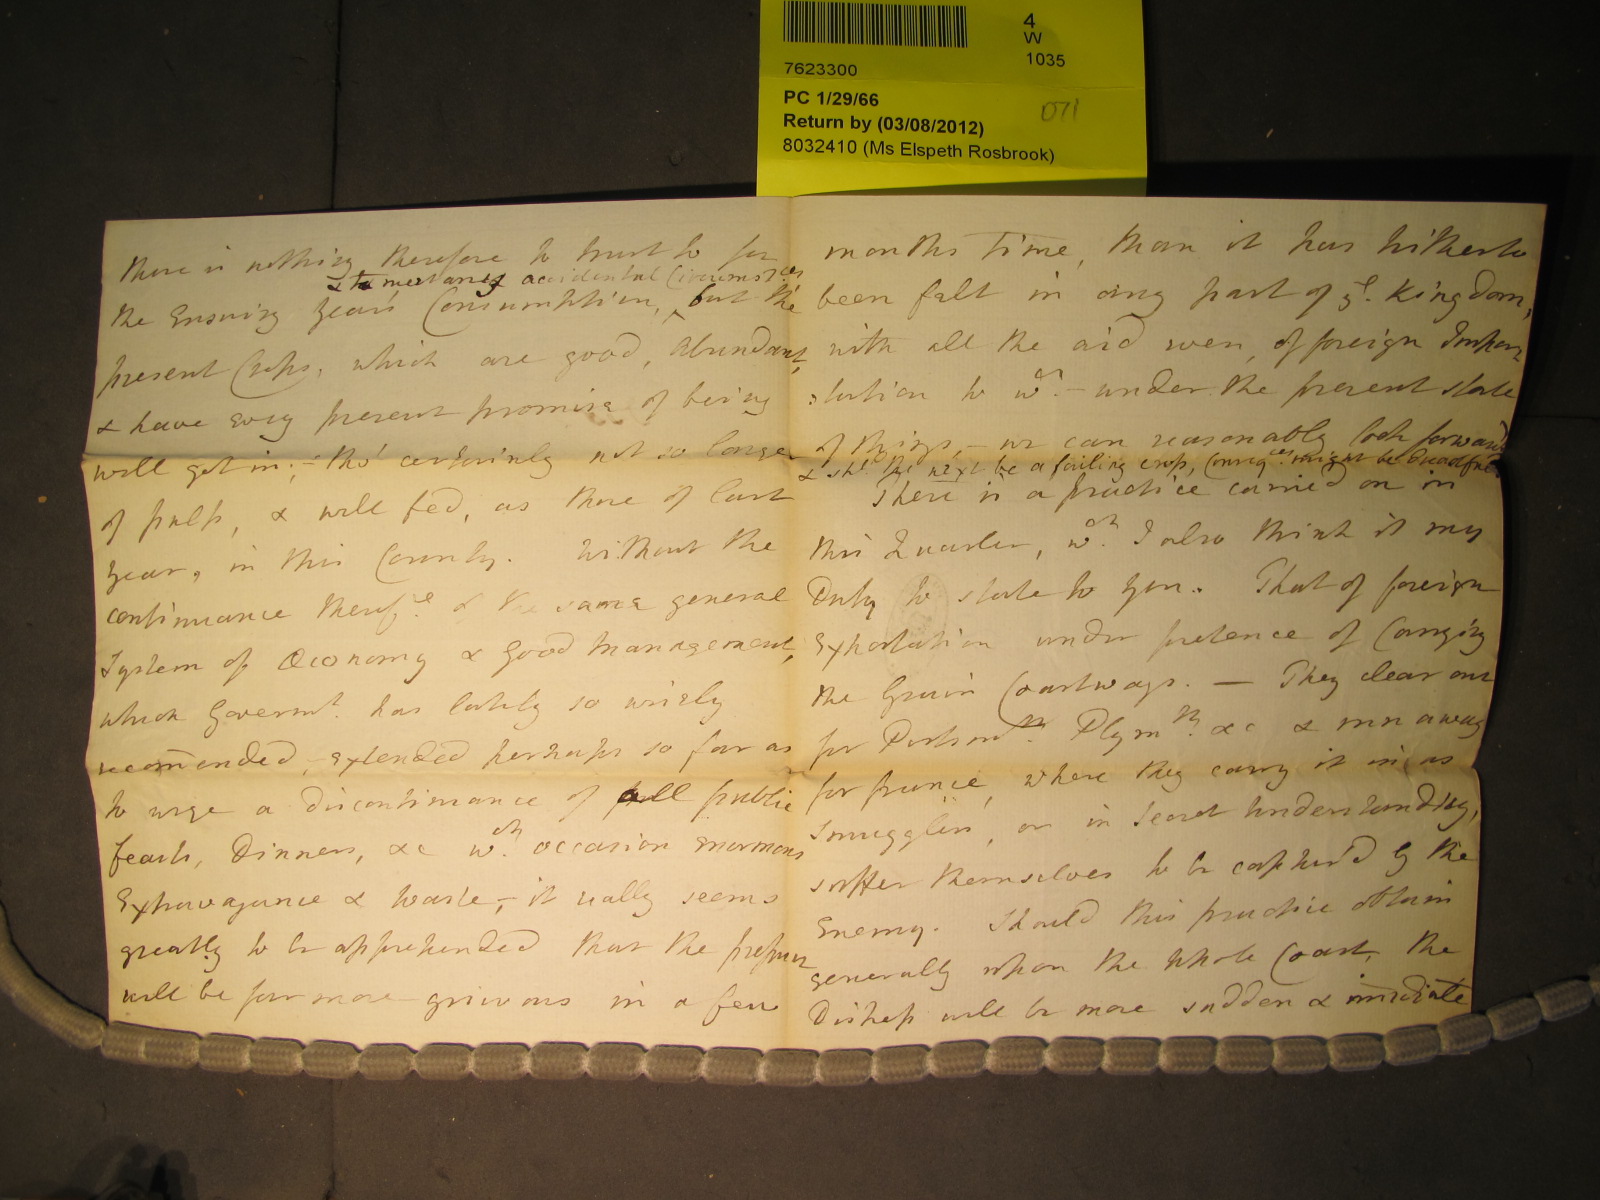 4
W
1035
7623300
PC 1/29/66
071
Return by (03/08/2012)
8032410 (Ms Elspeth Rosbrook)
there is nothing therefore to trust to for
& momentary accidental Circumstces
the Ensuing years Consumption, but the
present Crops, which are good, abundant,
& have every present promise of being
well got in; - tho' certainly not so large
of pulp, & well fed, as those of last
year, in this County. Without the
continuance therefre of the same general
System of Œconomy & good management,
which Governmt. has lately so wisely
recommended, - extended perhaps so far as
to urge a discontinuance of all public
feasts, Dinners, &c wch. occasion enormous
Extravagance & waste; - it really seems
greatly to be apprehended that the pressure
will be far more grievous in a few
months Time, than it has hitherto
been felt in any part of ye. Kingdom,
with all the aid even, of foreign Impor
:tation to wch. - under the present state
of things, - we can reasonably look forward
& shd. the next be a failing crop, Conseqces. might be dreadful
There is a practice carried on in
this Quarter, wch. I also think it my
Duty to state to you. That of foreign
Exportation under pretence of Carrying
the Grain Coastways. — They clear out
for Portsmth. Plymth. &c & run away
for france, where they carry it in as
Smugglers, or in Secret Understanding,
suffer themselves to be captur'd by the
Enemy. Should this practice obtain
generally upon the whole Coast, the
Distress will be more sudden & immediate